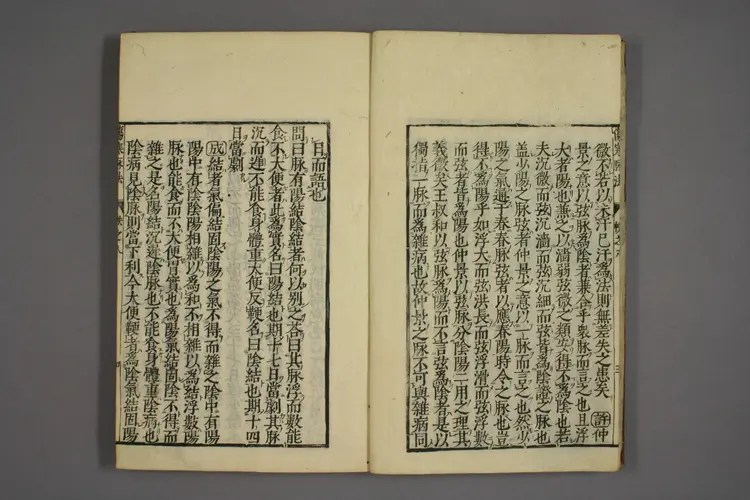 微不若以未汗已汗為法則無差失之患矣 許仲
景之意以弦脉為陰者兼合乎衆脉而言之也且浮
大者陽也兼之以濇弱弦微之類安得不為陰也若
夫沉微而弦沉濇而弦沉細而弦皆為陰證之脉也
盖少陽之脉弦者仲景之意以一脉而言之也然少
陽之氣通于春春脉弦者以應春陽時令之脉也豈
得不為陽乎如浮大而弦洪長而弦浮滑而弦浮數
而弦者皆為陽也仲景以弦脉分陰陽二用之理其
義微矣王叔和以弦脉為陽而不言弦為陰者是以
獨指一脉而為雜病也故仲景之脉不可與雜病同
日而語也
問曰脉有陽結陰結者何以別之荅曰其脉浮而數能
食不大便者此為實名曰陽結也期十七日當劇其脉
沉而遲不能食身體重大便反鞕名曰陰結也期十四
日當劇
成結者氣偏結固陰陽之氣不得而雜之陰中有陽
陽中有陰陰陽相雜以為和不相雜以為結浮數陽
脉也能食而不大便胃實也為陽氣結固陰不得而
雜之是名陽結沉遲陰脉也不能食身體重陰病也
陰病見陰脉則當下利今大便鞕者為陰氣結固陽